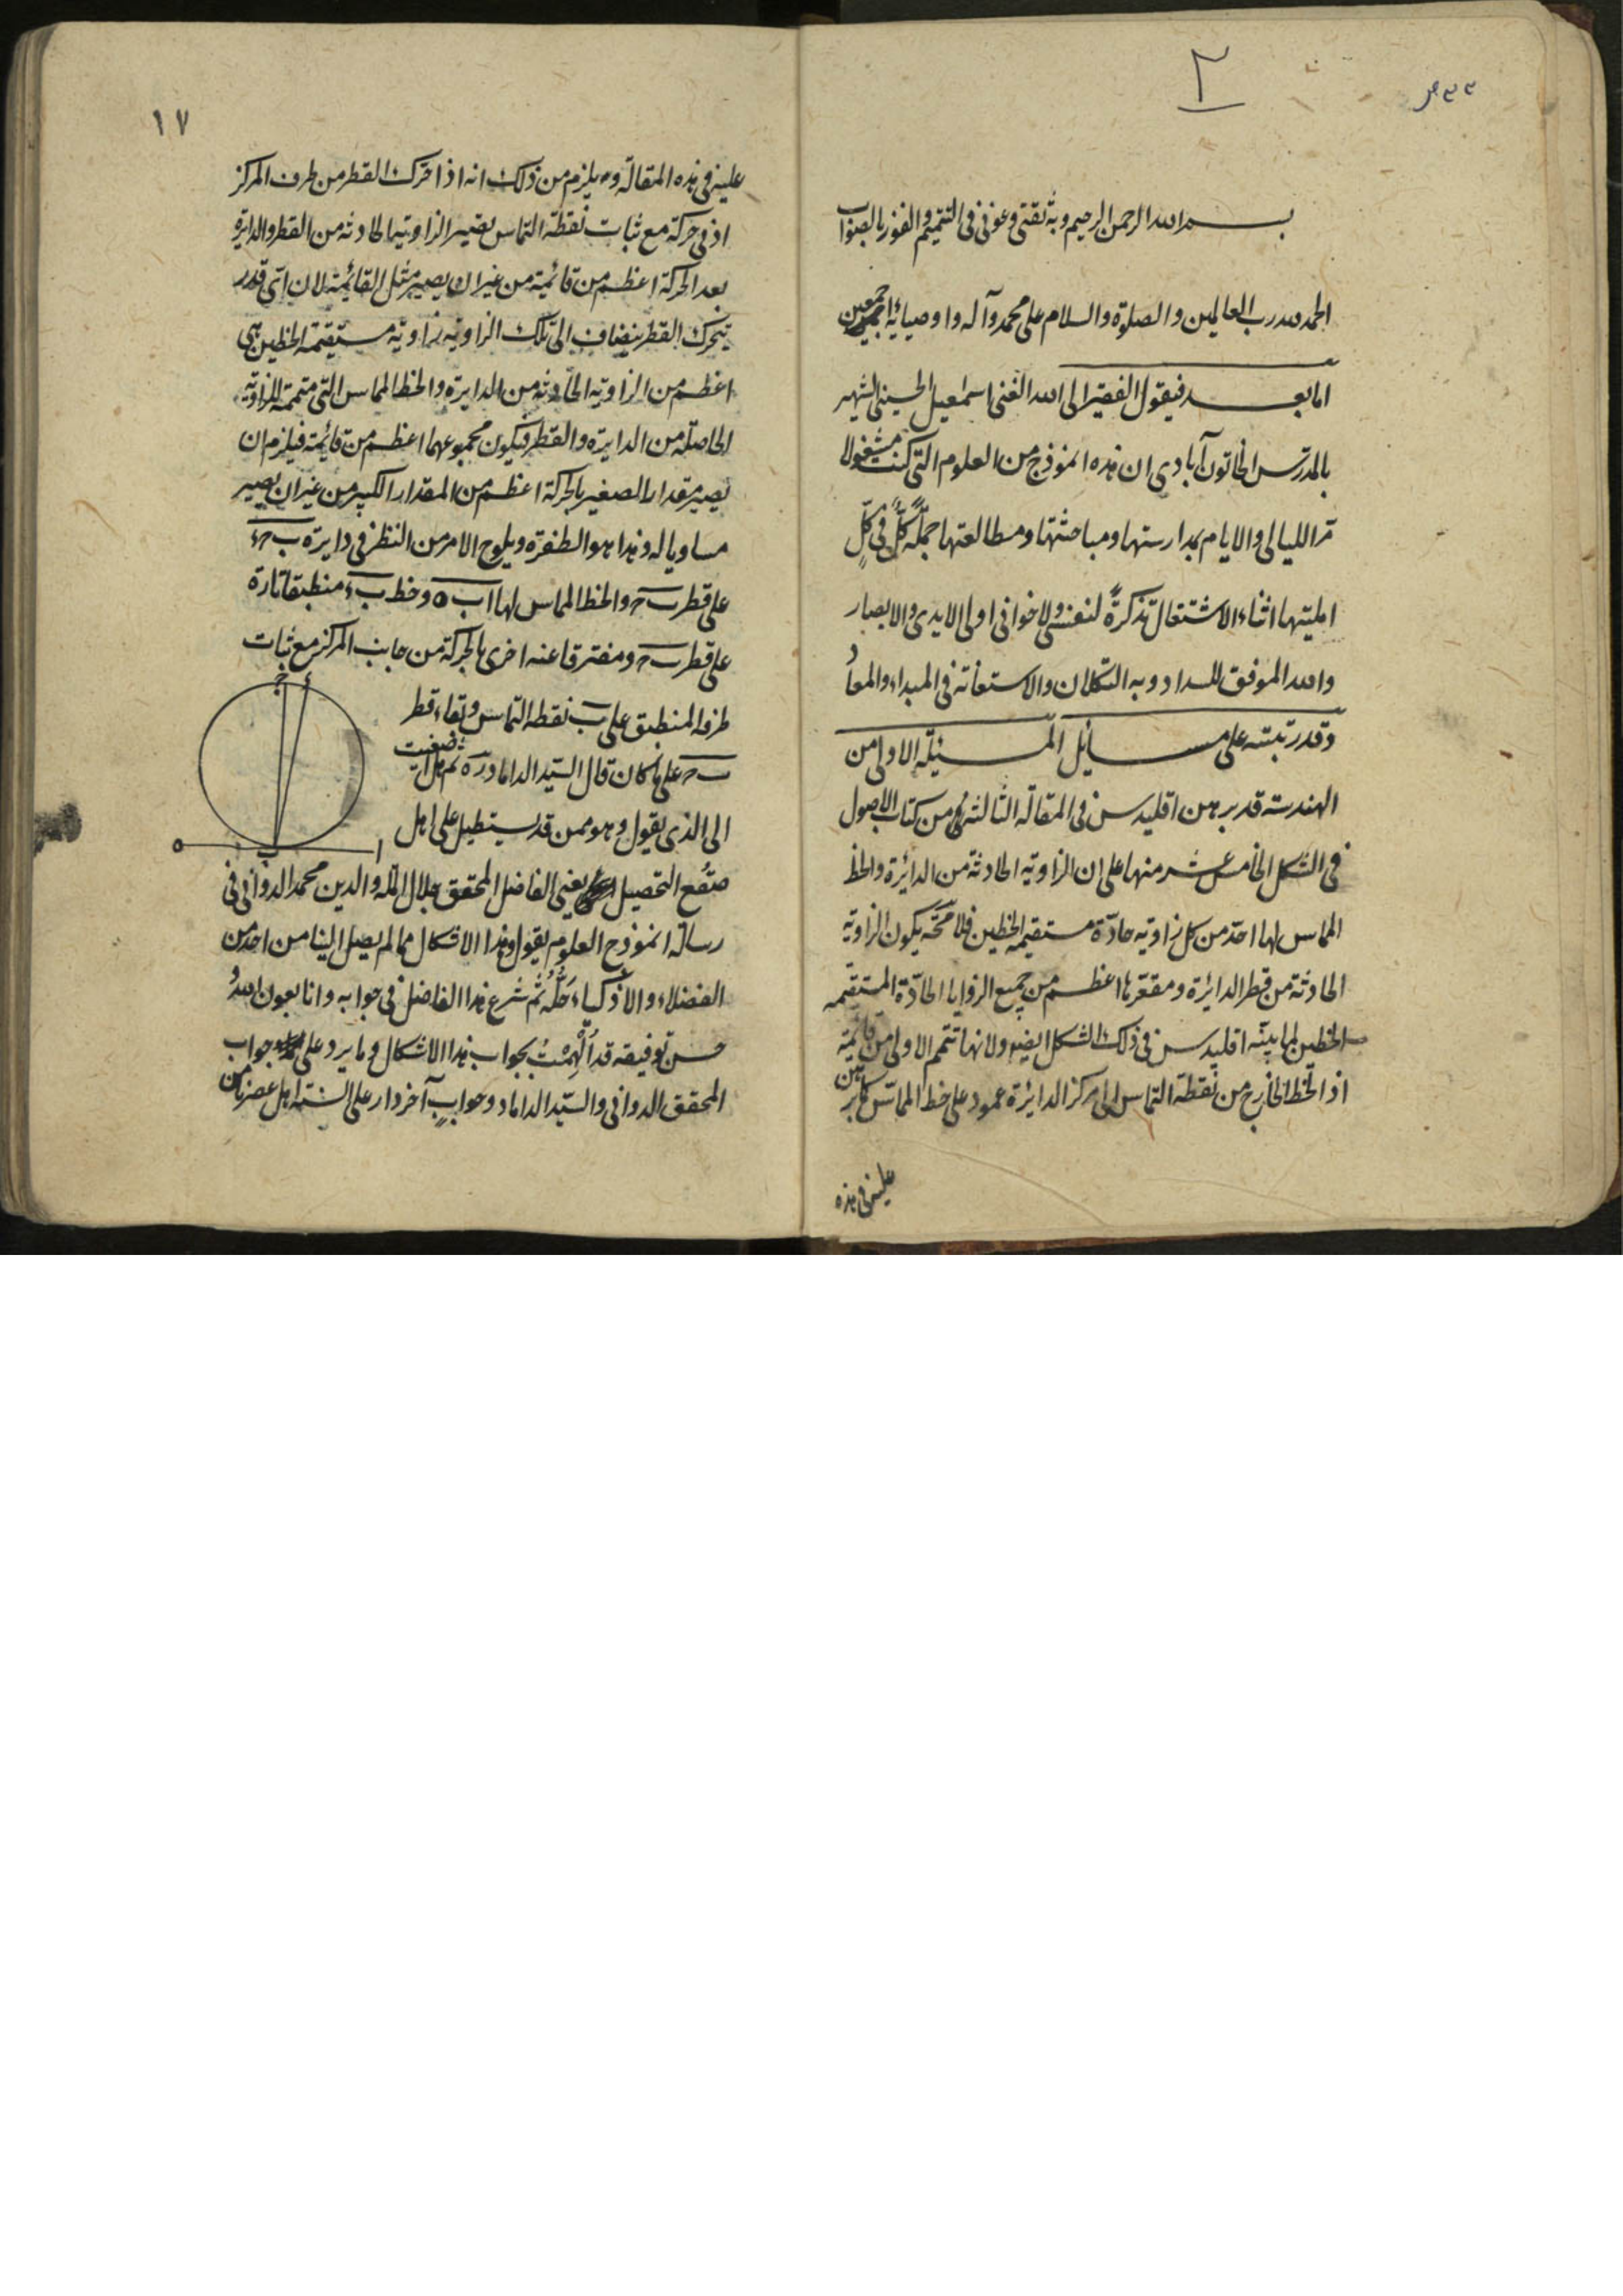 ٢
بسم الله الرحمن الرحيم وبه ثقتى وعونى فى التتميم والفوز بالصواب
الحمد لله رب العالمين والصلوة والسلام على محمد وآله واوصيائه اجمعين
اما بعد فيقول الفقير الى الله الغنى اسمعيل الحسينى الشهير
بالمدرس الخاتون آبادى ان هذه انموذج من العلوم التى كنت مشغولا
مر الليالى والايام بمدارستها ومباحثتها ومطالعتها جملة كل فى كل
امليتها اثناء الاشتغال تذكرة لنفسى ولاخوانى اولى الايدى والابصار
والله الموفق للسداد وبه التكلان والاستعانة فى المبداء والمعاد
وقد رتبته على مسائل المسئلة الاولى من
الهندسة قد برهن اقليدس فى المقالة الثالثة من كتاب الاصول
فى الشكل الخامس عشر منها على ان الزاوية الحادثة من الدائرة والخط
المماس لها احد من كل زاوية حادة مستقيمة الخطين فلا محة يكون الزاوية
الحادثة من قطر الدائرة ومقعرها اعظم من جميع الزوايا الحادة المستقيمه
الخطين لما بينه اقليدس فى ذلك الشكل ايضا ولانها تتمم الاولى من قائمة
اذ الخط الخارج من نقطة التماس الى مركز الدائرة عمود على خط المماس كما برهن
عليه فى هذه
١٧
عليه فى هذه المقالة ويلزم من ذلك انه اذا تحرك القطر من طرف المركز
ادنى حركة مع ثبات نقطة التماس يصير الزاوية الحادثه من القطر والدايرة
بعد الحركة اعظم من قائمة من غير ان يصير مثل القائمة لان اى قدر
يتحرك القطر ينضاف الى تلك الزاويه زاوية مستقيمة الخطين هى
اعظم من الزاوية الحادثة من الدايرة والخط المماس التى متممة للزاوية
الحاصلة من الدايرة والقطر فيكون مجموعهما اعظم من قائمة فيلزم ان
يصير مقدار الصغير بالحركة اعظم من المقدار الكبير من غير ان يصير
مساويا له وهذا هو الطفرة ويلوح الامر من النظر فى دايرة ب ح ء
على قطر ب ح والخط المماس لها ا ب ه وخط ب ء منطبقا تارة
على قطر ب ح ومفترقا عنه اخرى بالحركة من جانب المركز مع ثبات
طرفه المنطبق على ب نقطه التماس وبقاء قطر
ب ح على ما كان قال السيد الداماد ره ثم هل اصغيت
الى الذى يقول وهو ممن قد يستطيل على اهل
ج ء
ه ب ا
صقع التحصيل يعنى الفاضل المحقق جلال الملة والدين محمد الدوانى فى
رسالة انموذج العلوم يقول وهذا الاشكال مما لم يصل الينا من احد من
الفضلاء والاذكياء حله ثم شرع هذا الفاضل فى جوابه وانا بعون الله
حسن توفيقه قد الهمت بجواب هذا الاشكال وما يرد على جواب
المحقق الدوانى والسيد الداماد وجواب آخر دار على السنة اهل عصرنا من